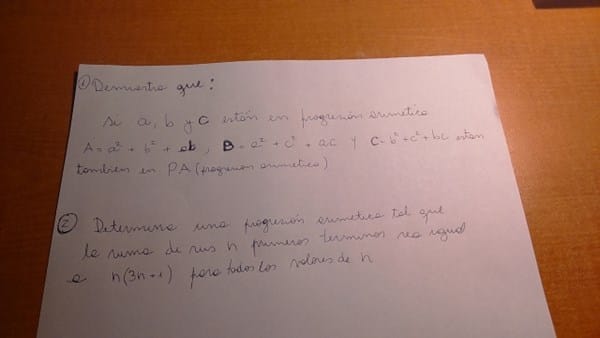 ① Demuestra que:
Si a, b y c están en progresión aritmética
A = a² + b² + ab, B = a² + c² + ac y C = b² + c² + bc estan
tambien en P.A (progresion aritmetica)
② Determina una progresión aritmetica tal que
la suma de sus n primeros terminos sea igual
a n(3n+1) para todos los valores de n